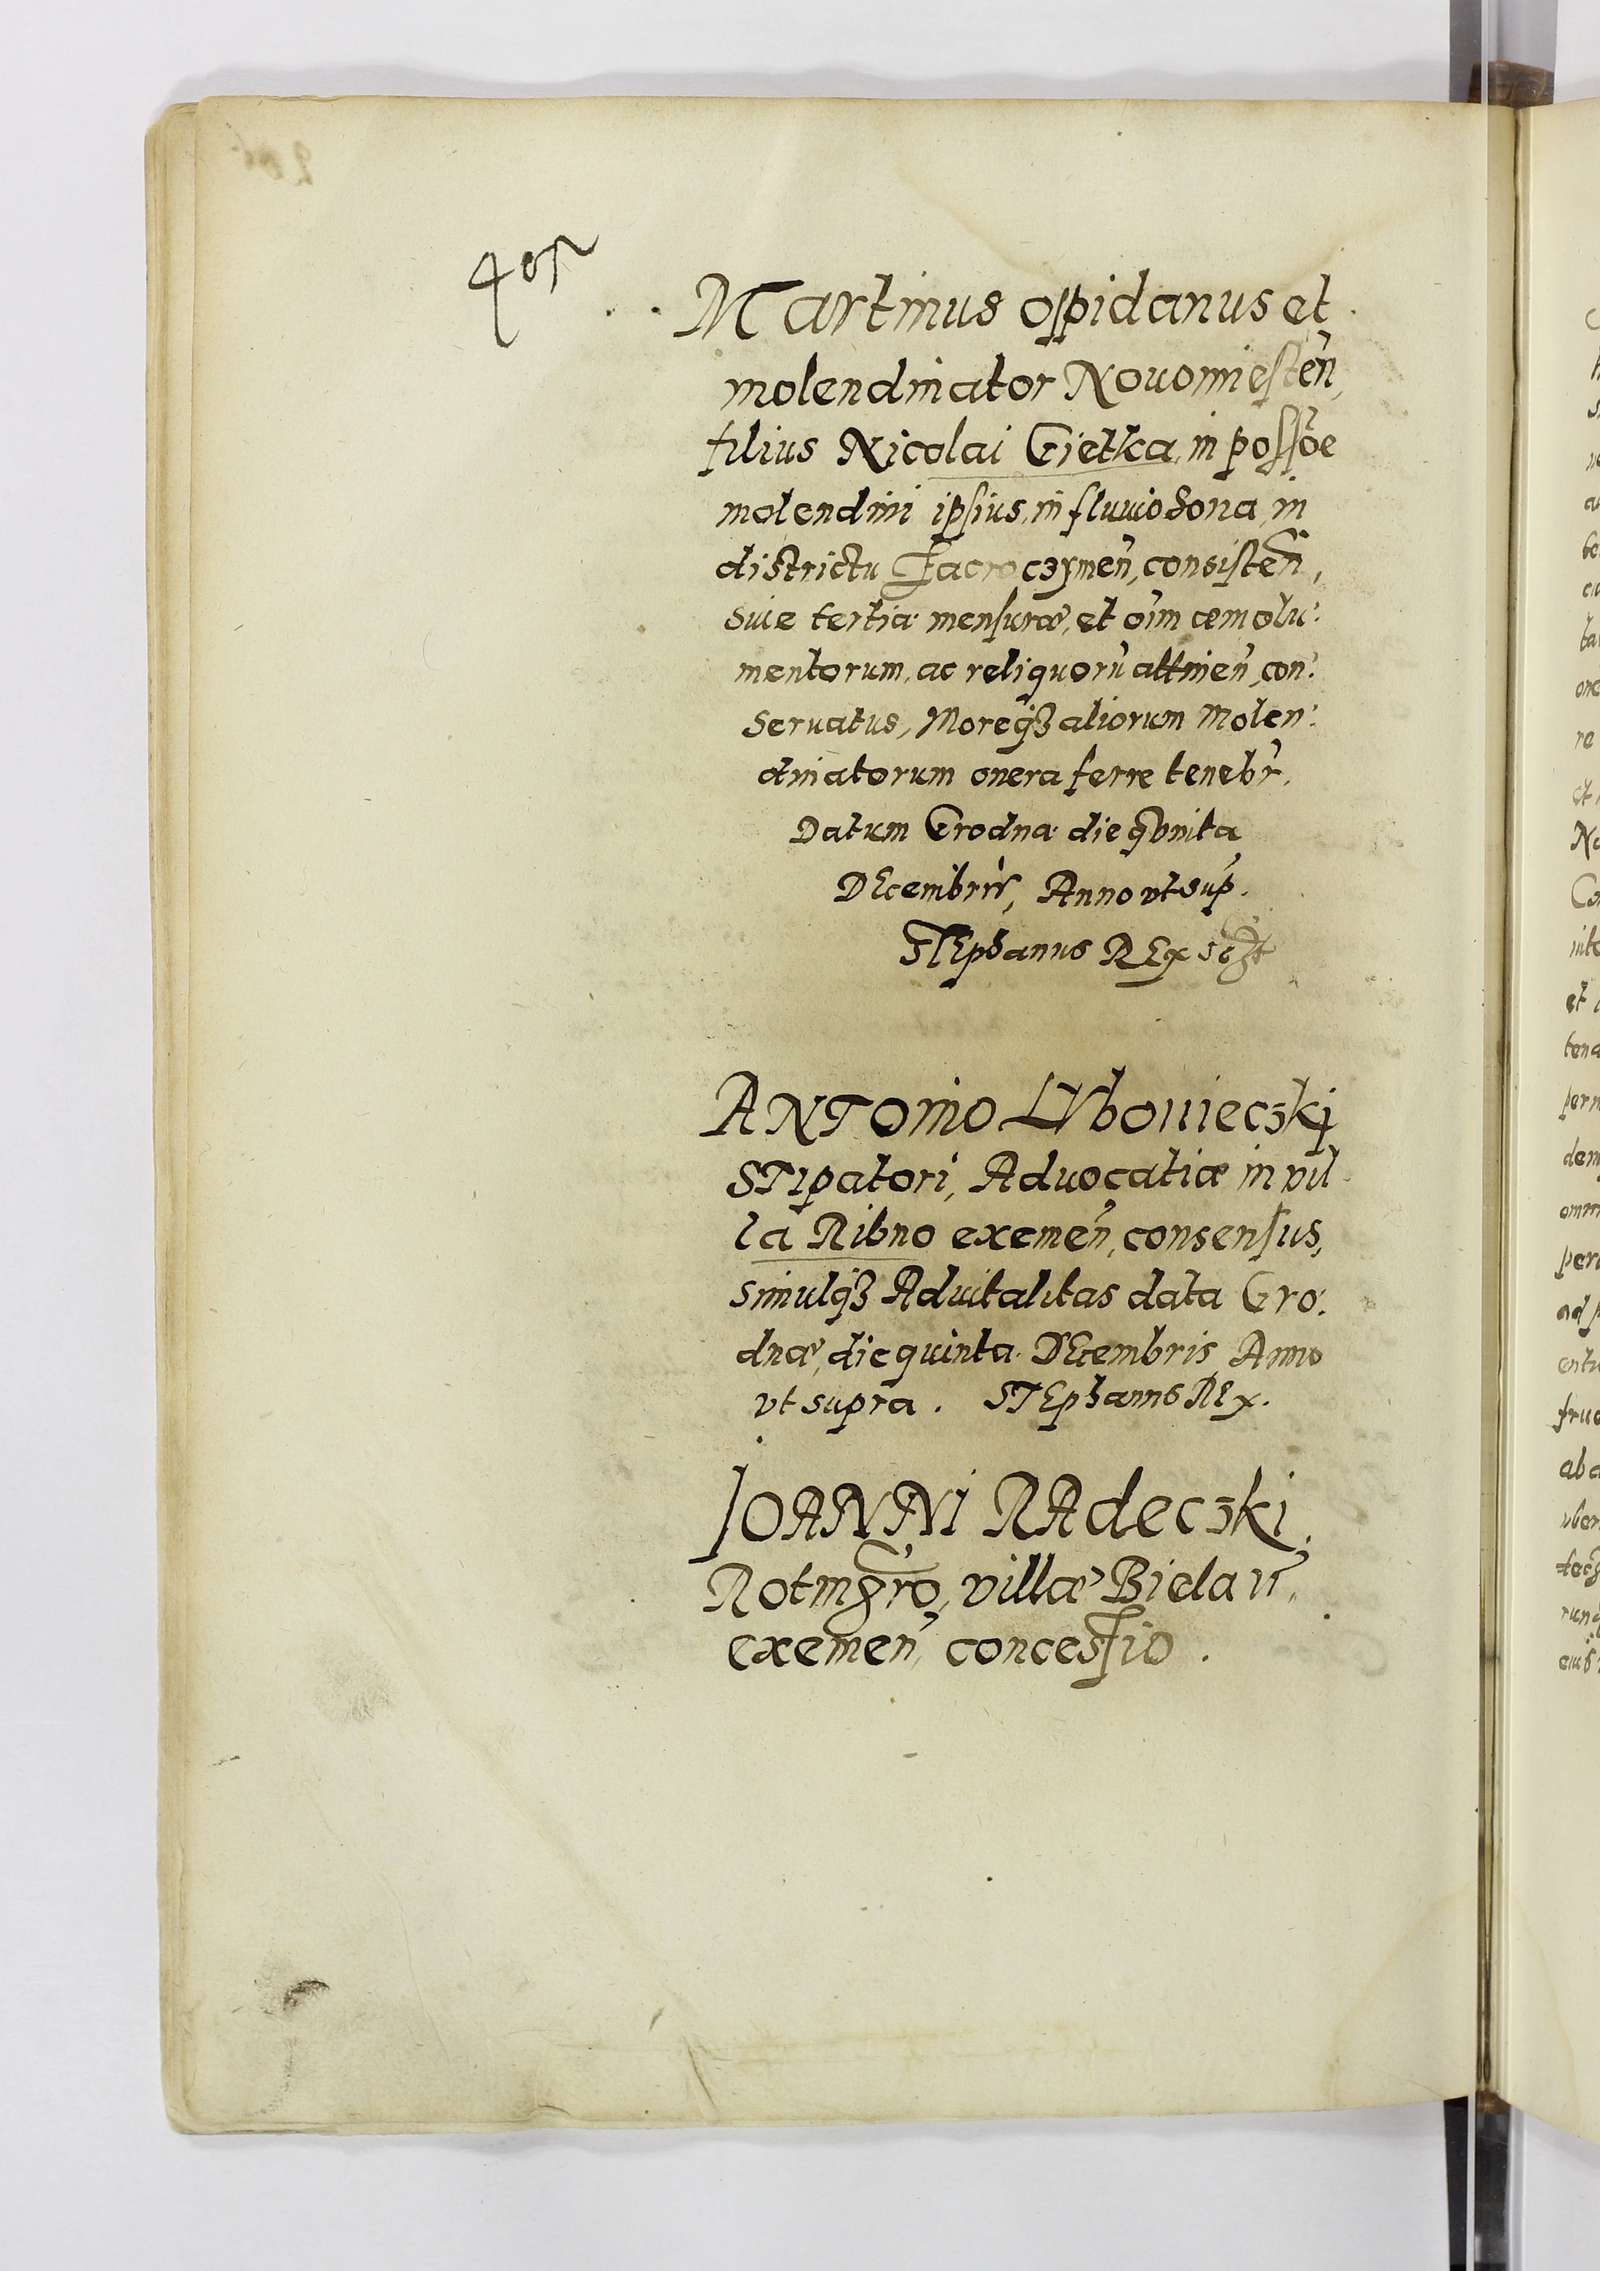 Martinus oppidanus et
molendinator Nouomiesten,
filius Nicolai Gietka, in possoe
molendini ipsius, in fluuio Sona, in
districtu Zacroczymen, consisten,
suae tertia mensuræ, et oim æmolu:
mentorum, ac reliquorũ attinen, con:
seruatus, Moreqʒ aliorum Molen:
dinatorum onera ferre tenebr.
Datum Grodna die qvinta
DEcembris, Anno vt sup.
STEphanus REx
ANTOnio LVbouieczki
STIpatori, Aduocatiæ in vil
la Ribno exemen, consensus,
simulqʒ Aduitalitas data Gro:
dnæ, die quinta DEcembris Anno
vt supra. STEphanus REx.
IOANNI RAdeczki
Rotmgro, villæ Biela
exemen, concessio.